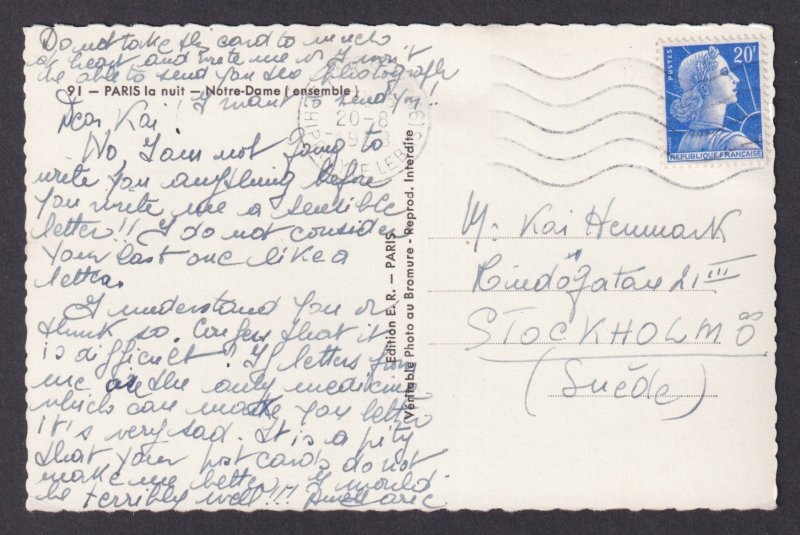 Do not take this card to much
at heart and write me or I won't
be able to send you see Photograph
I want send you!!
91 — PARIS la nuit — Notre-Dame (ensemble)
Dear Kai
No I am not going to
write you anything before
you write me a sensible
letter!! I do not consider
your last one like a
letter.
I understand you or
think so. Confess that it
is difficult! If letters from
me are the only medicine
which can make you better
it's very sad. It is a pity
that your post cards do not
make me better I would
be terribly well!!!
Edition E. R. — PARIS
Véritable Photo au Bromure - Reprod. Interdite
20-8
POSTES
20F
REPUBLIQUE FRANÇAISE
M. Kai Henmark
21 III
STOCKHOLM Ö
(Suède)